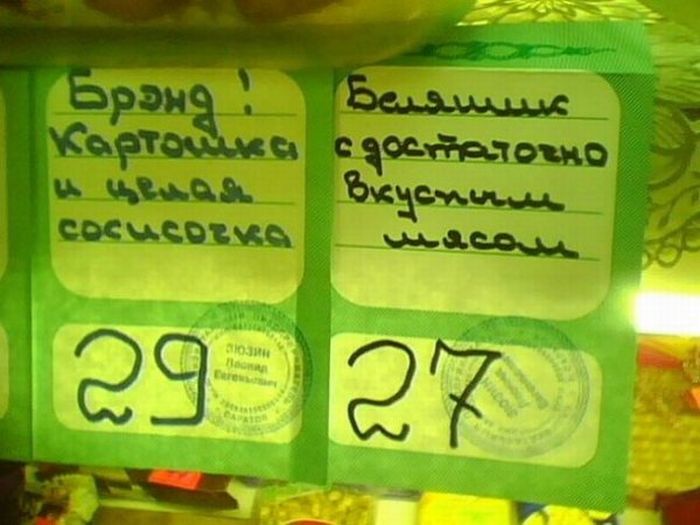 Брэнд!
Картошка
и целая
сосисочка
29
ЗЮЗИН
Леонид
Евгеньевич
САРАТОВ
Беляшик
с достаточно
вкусным
мясом
27